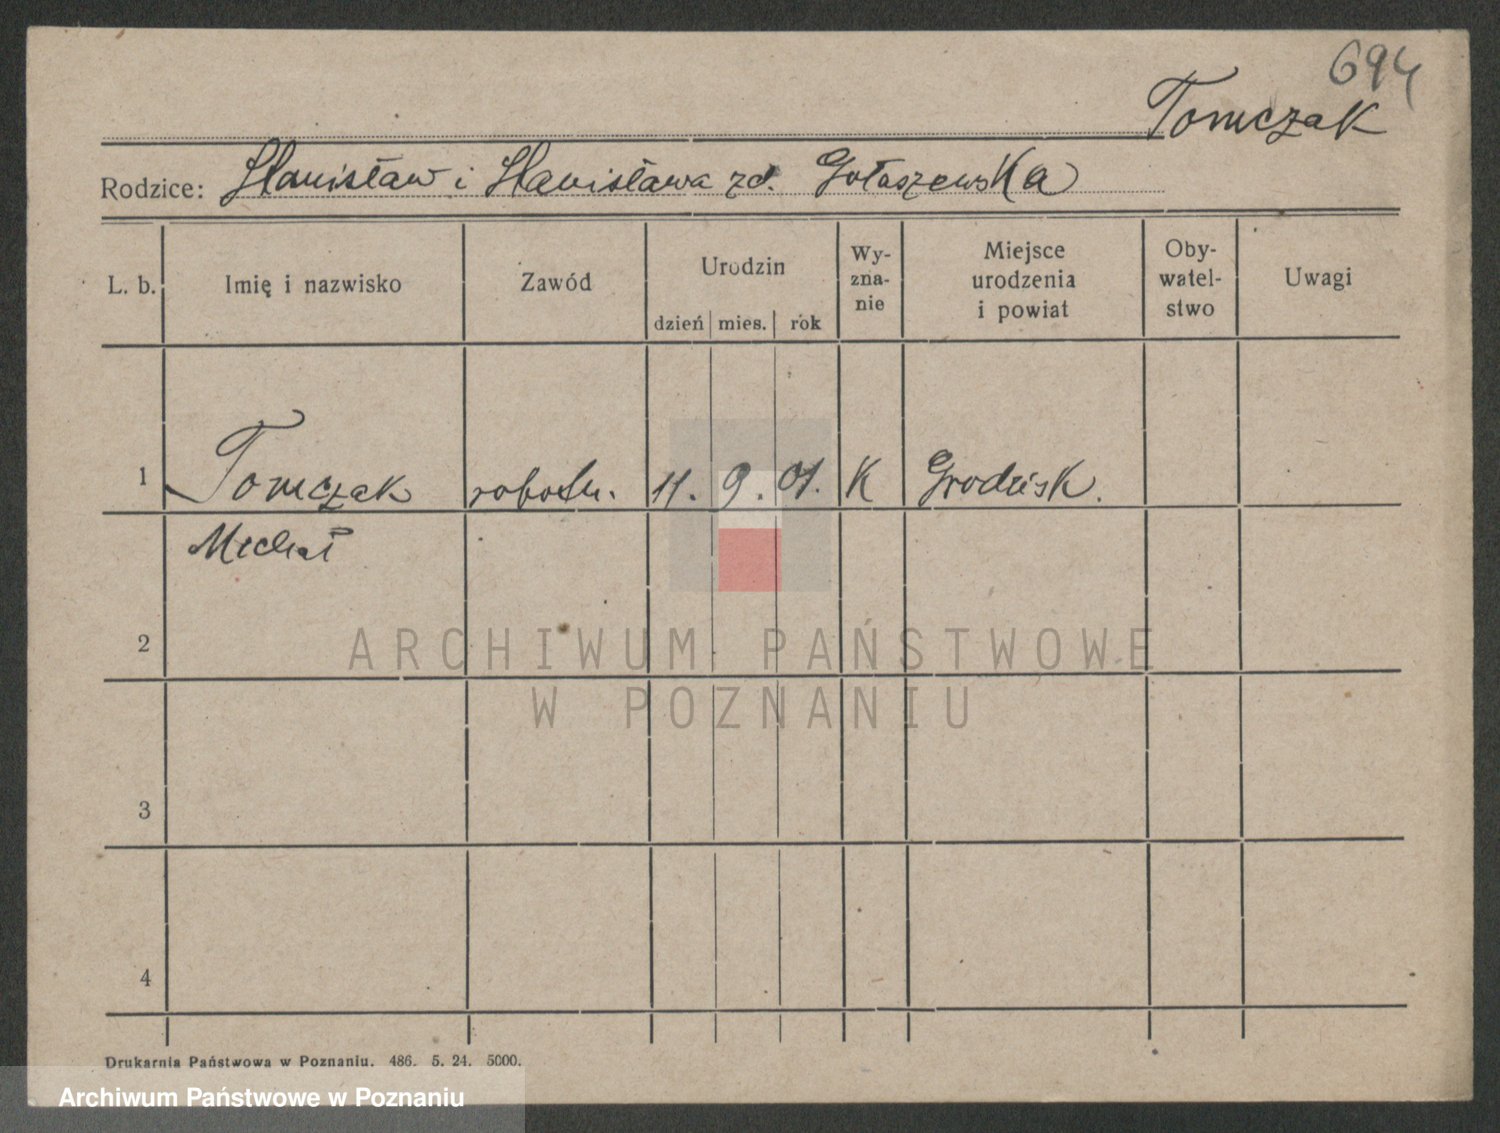 694
Tomczak
Rodzice: Stanisław i Stanisława zd. Gołaszewska
L. b. Imię i nazwisko Zawód Urodzin Wy-zna-nie Miejsce urodzenia i powiat Oby-watel-stwo Uwagi
dzień mies. rok
1 Tomczak robotn. 11. 9. 01. K Grodzisk.
Michał
2
ARCHIWUM PAŃSTWOWE
W POZNANIU
3
4
Drukarnia Państwowa w Poznaniu. 486. 5. 24. 5000.
Archiwum Państwowe w Poznaniu